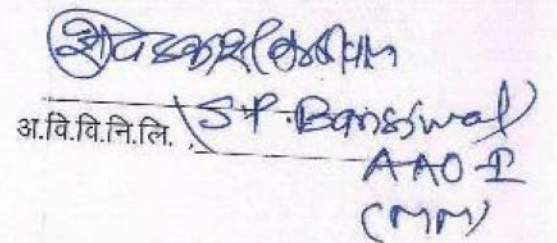 अ.वि.वि.नि.लि.
S.P. Bansiwal
AAO-I
(MM)